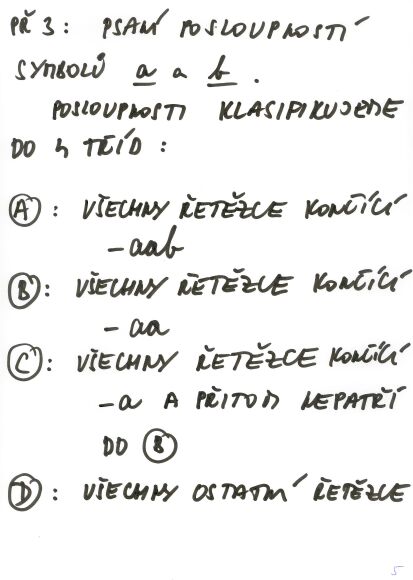 PŘ 3: PSANÍ POSLOUPNOSTÍ
SYMBOLŮ a a b.
POSLOUPNOSTI KLASIFIKUJEME
DO 4 TŘÍD:
A: VŠECHNY ŘETĚZCE KONČÍCÍ
-aab
B: VŠECHNY ŘETĚZCE KONČÍCÍ
-aa
C: VŠECHNY ŘETĚZCE KONČÍCÍ
-a A PŘITOM NEPATŘÍ
DO B
D: VŠECHNY OSTATNÍ ŘETĚZCE
5